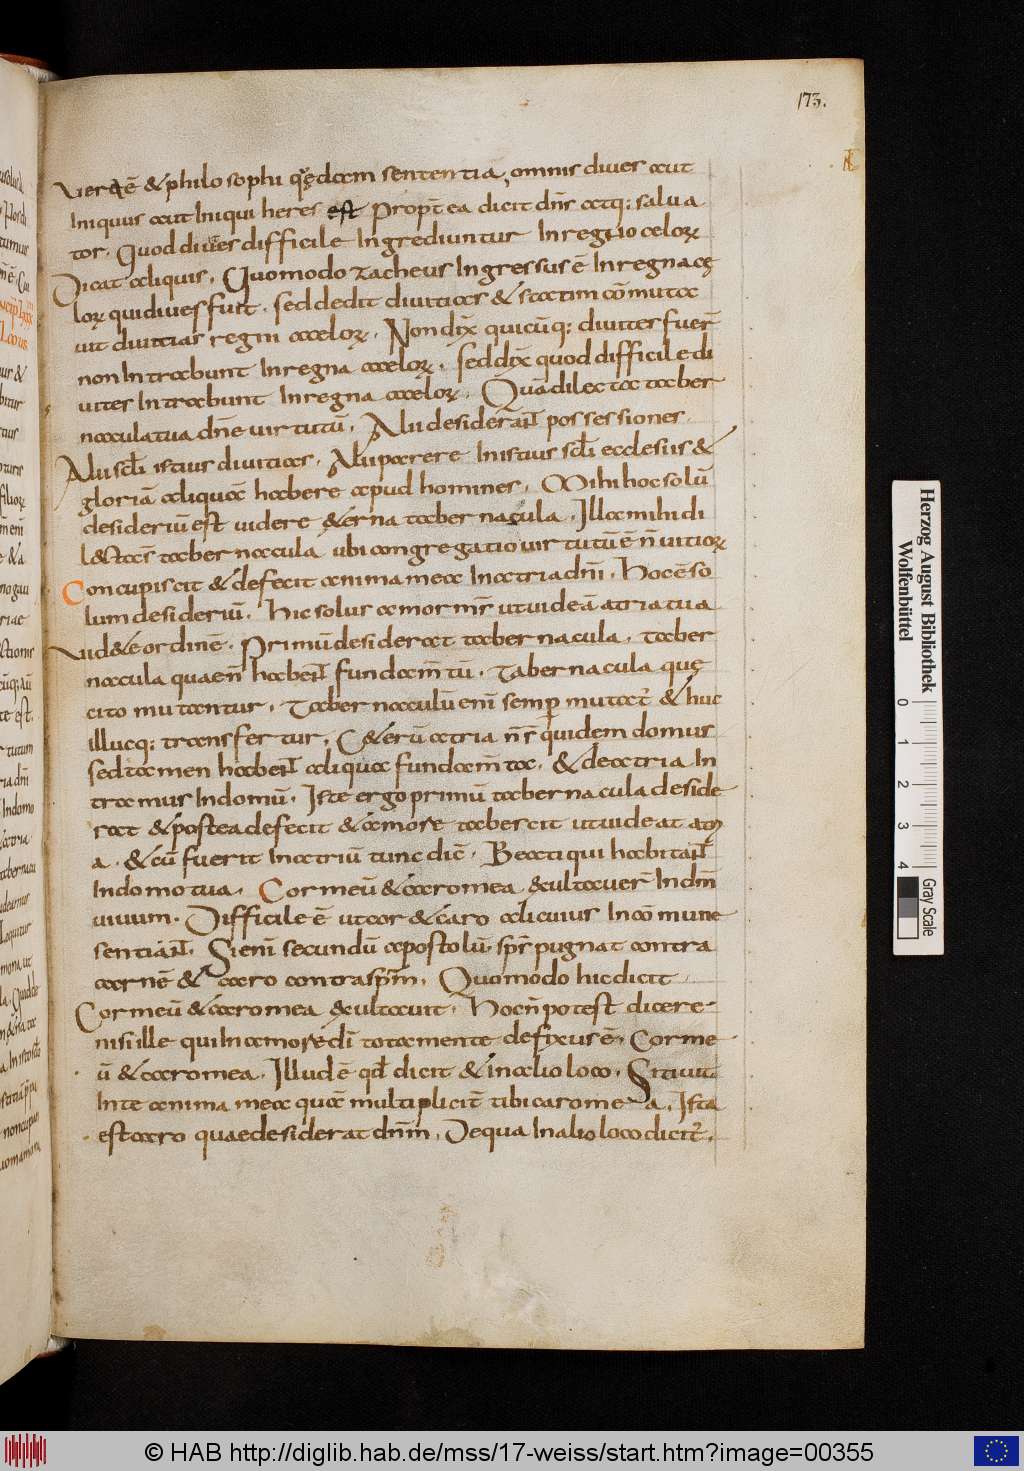 173.
uerũ ẽ & philosophi quędam sententiã, omnis diues aut
Iniquus aut Iniqui heres est Propt̃ea dicit dñs atq: salua
tor. Quod diues difficile Ingrediuntur In regno celoꝝ
Dicat aliquis. Quomodo zacheus Ingressus ẽ In regna cę
loꝝ qui diues fuit. sed dedit diuitias & statim cõmuta
uit diuitias regni cæloꝝ. Non dix̃ quicũq: diuites fuer̃
non Intrabunt In regna cæloꝝ. sed dix̃ quod difficile di
uites Intrabunt In regna cæloꝝ. Quã dilecta taber
nacula tua dñe uirtutũ. Alii desiderãnt possessiones.
Alii scl̃i istius diuitias. Alii parere In istius scl̃i ecclesiis &
gloriã aliquã habere apud homines. Mihi hoc solũ
desideriũ est uidere &erna tabernacula. Illa mihi di
l&as tabernacula ubi congregatio uirtutũ ẽ ñ uitioꝝ
Concupiscit & defecit anima mea In atria dñi. Hoc ẽ so
lum desideriũ. Hic solus amor mr̃ ut uideã atria tua
Uid&e ordinẽ. Primũ desiderat tabernacula. taber
nacula quae ñ habent fundam̃tũ. Tabernacula quę
cito mutantur. Tabernaculũ enĩ semp mutat̃ & huc
illucq: transfertur. C&erũ atria ñ s̃ quidem domus
sed tamen habent aliqua fundam̃ta. & de atria In
tramus In domũ. Iste ergo primũ tabernacula deside
rat & postea defecit & amore tabescit ut uideat atri
a. & cũ fuerit In atriũ tunc dic̃. Beati qui habitant
In domo tua. Cor meũ & caro mea exultauer̃ In dm̃
uiuum. Difficile ẽ ut cor & caro alicuius In cõmune
sentiant. Si enĩ secundũ apostolũ. spr̃ pugnat contra
carnẽ & caro contra spm̃. Quomodo hic dicit
Cor meũ & caro mea exultauit. Hoc ñ potest dicere
nisi ille qui In amore dĩ tota mente defixus ẽ. Cor me
ũ & caro mea. Illud ẽ qđ dicit & in alio loco. Sitiuit
In te anima mea quã multiplicit̃ tibi caro mea. Ista
est caro quae desiderat dñm. De qua In alio loco dicit̃.
Herzog August Bibliothek
Wolfenbüttel
0 1 2 3 4
Gray Scale
© HAB http://diglib.hab.de/mss/17-weiss/start.htm?image=00355